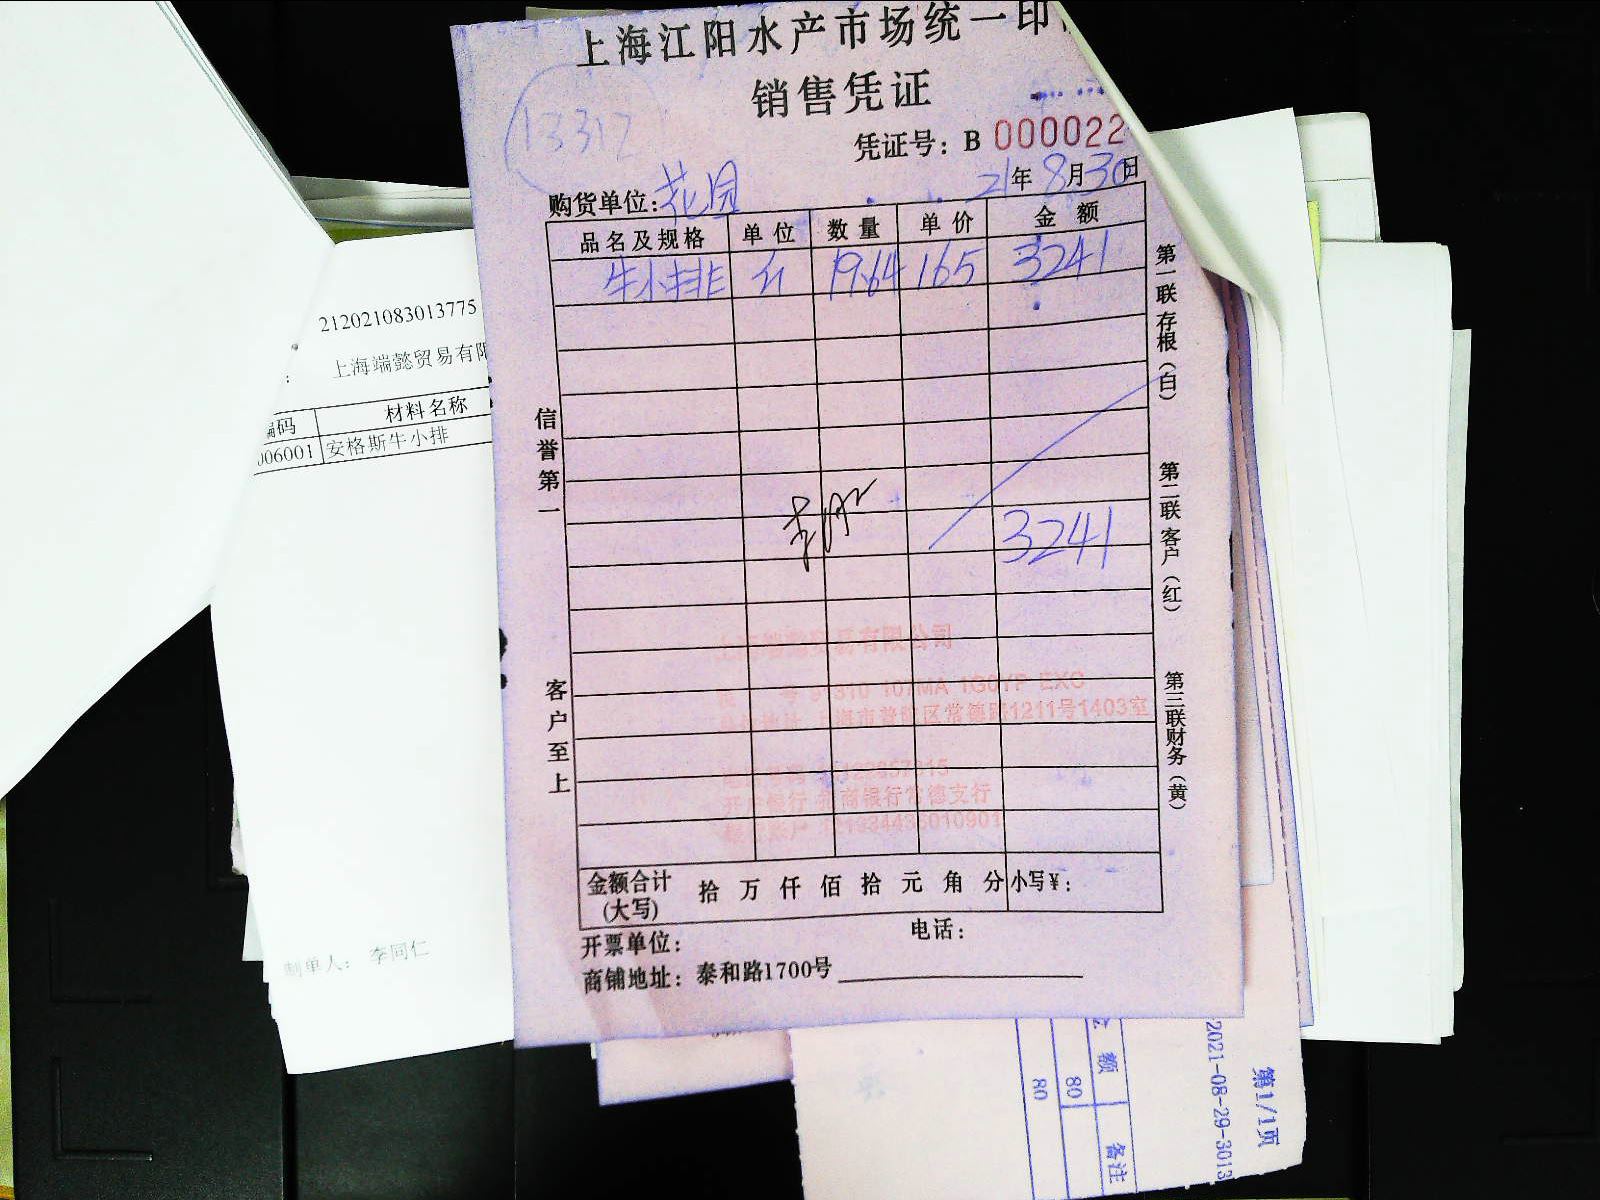 上海江阳水产市场统一印
销售凭证
13312
凭证号：B 000022
21年8月30日
购货单位：花园
品名及规格 单位 数量 单价 金额
牛小排 斤 19.64 165 3241
3241
信誉第一
客户至上
第一联存根（白）
第二联客户（红）
第三联财务（黄）
上海端懿贸易有限公司
上海市普陀区常德路1211号1403室
金额合计(大写) 拾 万 仟 佰 拾 元 角 分 小写¥：
开票单位： 电话：
商铺地址：泰和路1700号
212021083013775
上海端懿贸易有限
编码 材料名称
006001 安格斯牛小排
制单人： 李同仁
第1/1页
2021-08-29-3013
金额 备注
80
80